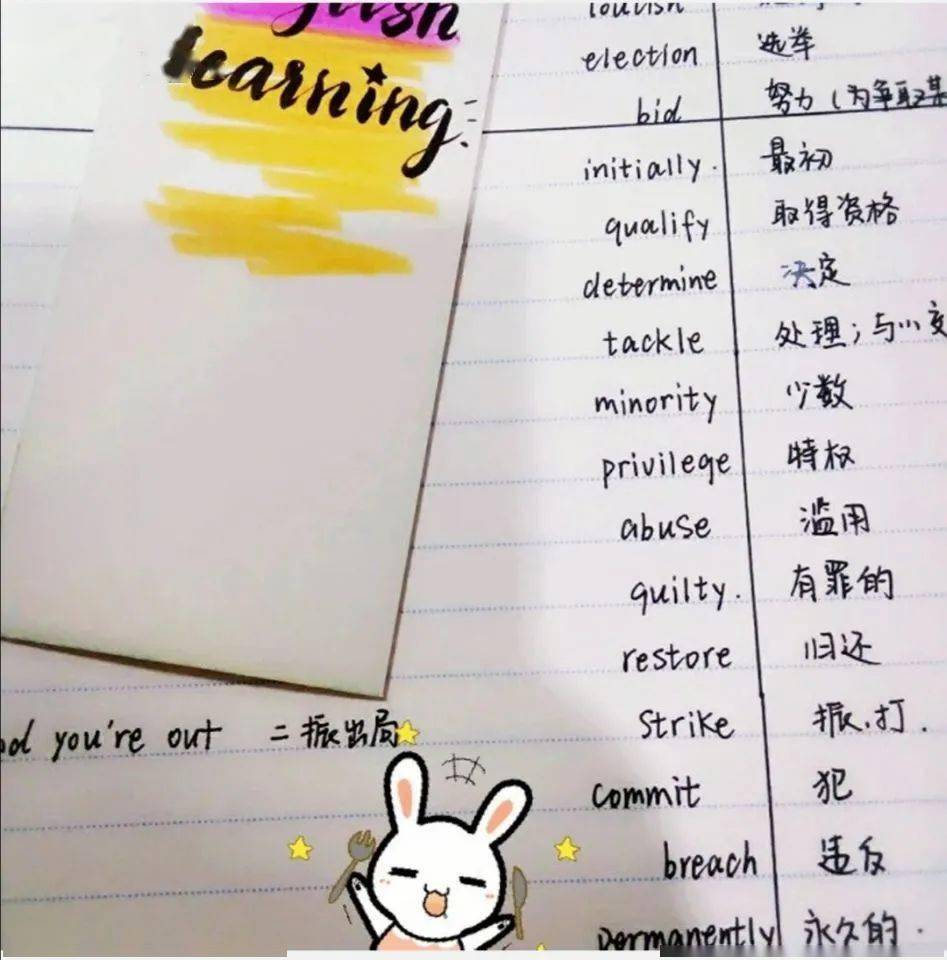 learning
election 选举
bid 努力（为争取某
initially. 最初
qualify 取得资格
determine 决定
tackle 处理；与
minority 少数
privilege 特权
abuse 滥用
guilty. 有罪的
restore 归还
you're out = 振出局
strike 振.打.
commit 犯
breach 违反
permanently 永久的.